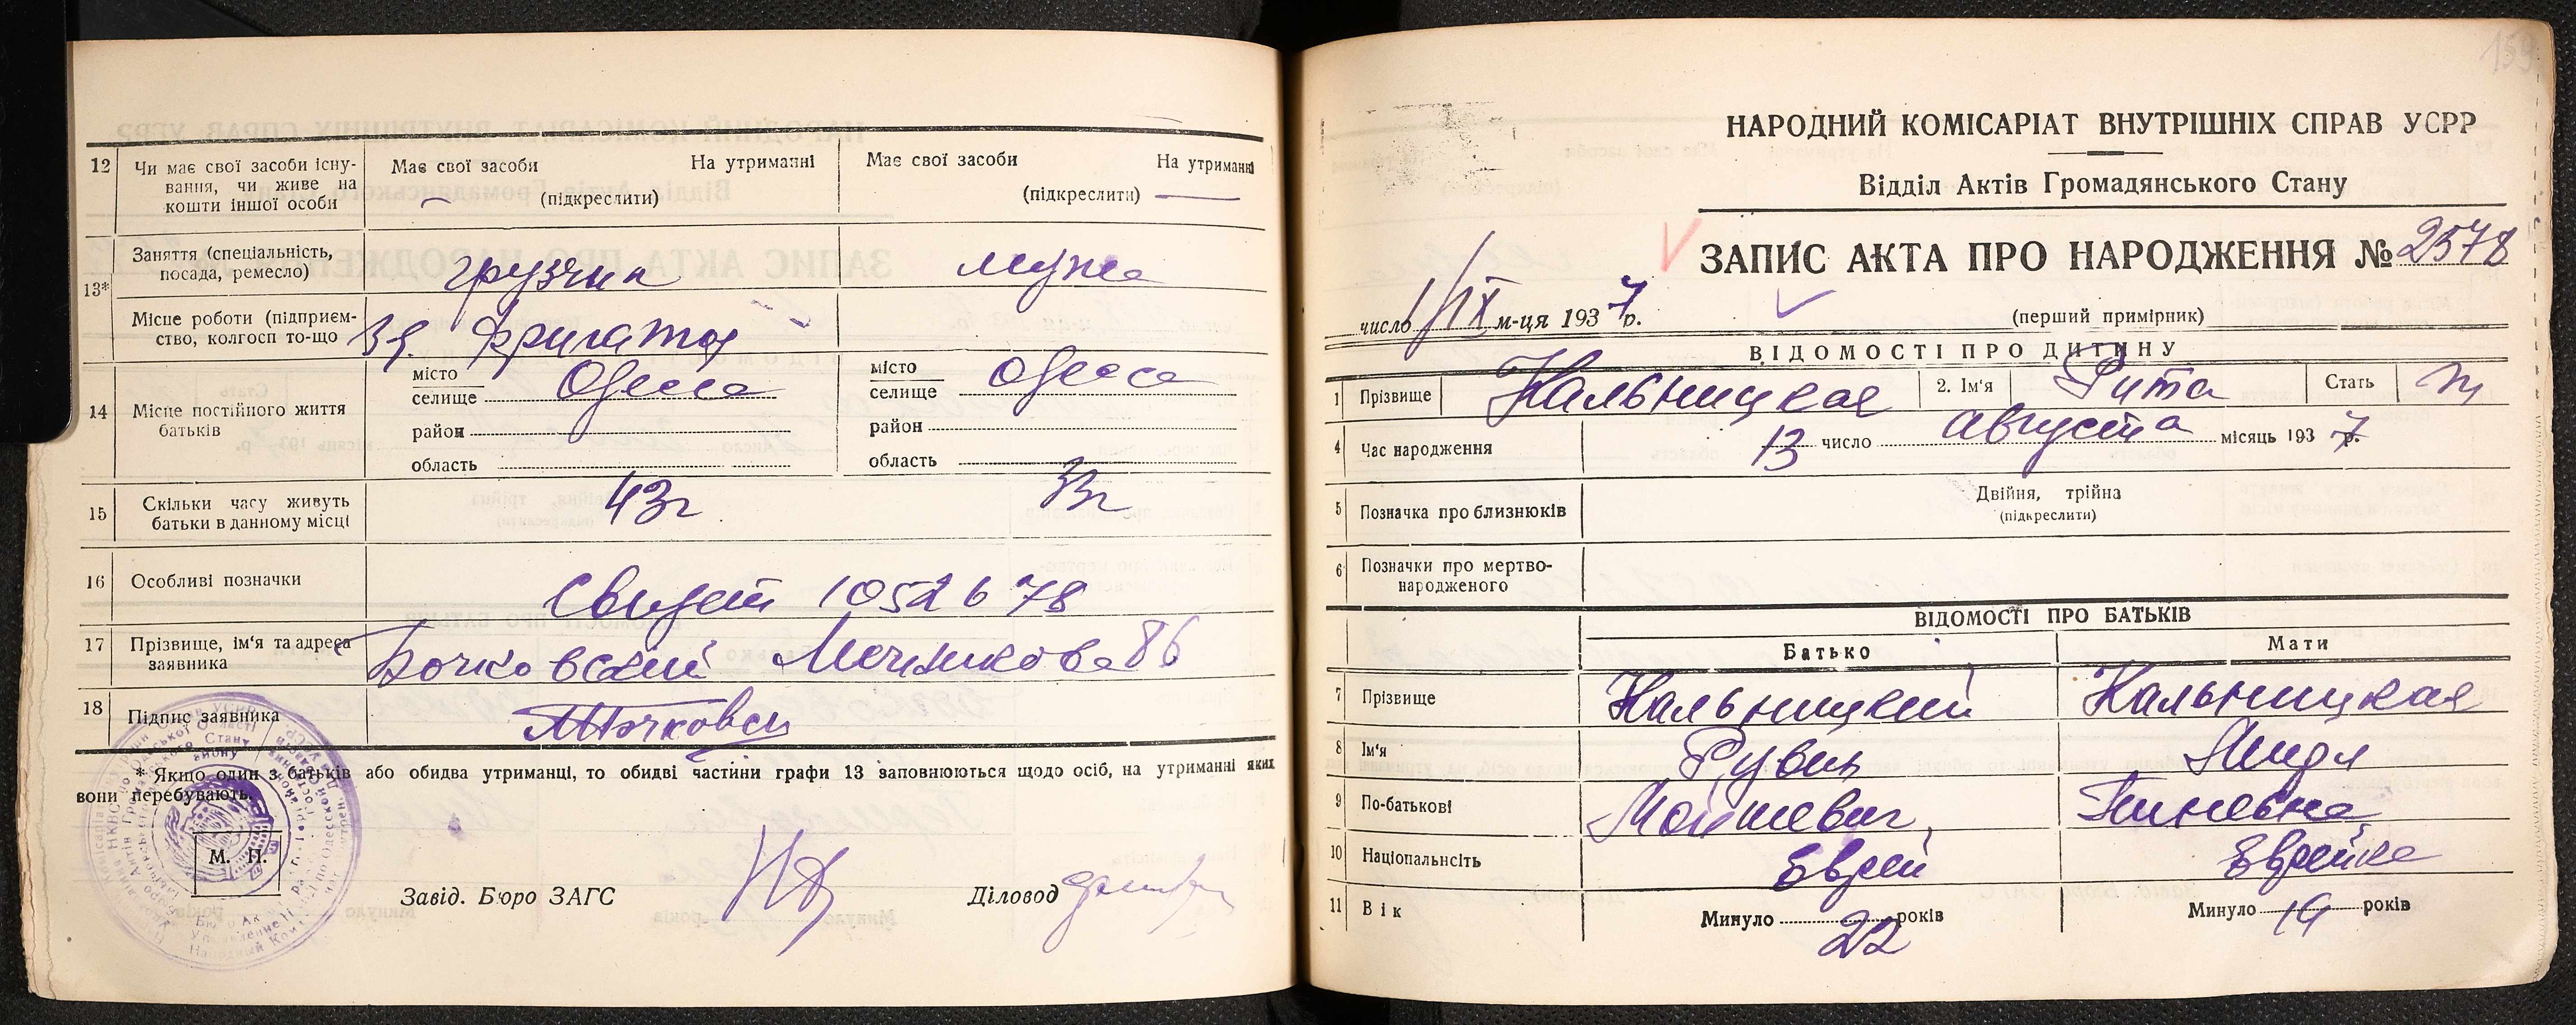 12 Чи має свої засоби існу-
вання, чи живе на
кошти іншої особи
Має свої засоби На утриманні
(підкреслити)
Має свої засоби На утриманні
(підкреслити)
13*
Заняття (спеціальність,
посада, ремесло)
грузчик
мужа
Місце роботи (підприєм-
ство, колгосп то-що
14 Місце постійного життя
батьків
місто
селище Одесса
район
область
місто
селище Одесса
район
область
15 Скільки часу живуть
батьки в данному місці
43г
33г
16 Особливі позначки
17 Прізвище, ім'я та адреса
заявника
Бочковский Мечникова 86
18 Підпис заявника
* Якщо один з батьків або обидва утриманці, то обидві частини графи 13 заповнюються щодо осіб, на утриманні яких
вони перебувають.
М. П.
Завід. Бюро ЗАГС
Діловод
159
НАРОДНИЙ КОМІСАРІАТ ВНУТРІШНІХ СПРАВ УСРР
Відділ Актів Громадянського Стану
ЗАПИС АКТА ПРО НАРОДЖЕННЯ № 2578
число 1/IX м-ця 1937 р.
(перший примірник)
ВІДОМОСТІ ПРО ДИТИНУ
1 Прізвище Кальницкая 2. Ім'я Рита Стать
4 Час народження 13 число августа місяць 1937 р.
5 Позначка про близнюків
Двійня, трійна
(підкреслити)
6 Позначки про мертво-
народженого
ВІДОМОСТІ ПРО БАТЬКІВ
Батько Мати
7 Прізвище Кальницкий Кальницкая
8 Ім'я Рувин
9 По-батькові Мойшевич Пиневна
10 Національність Еврей Еврейка
11 Вік Минуло 22 років Минуло 19 років